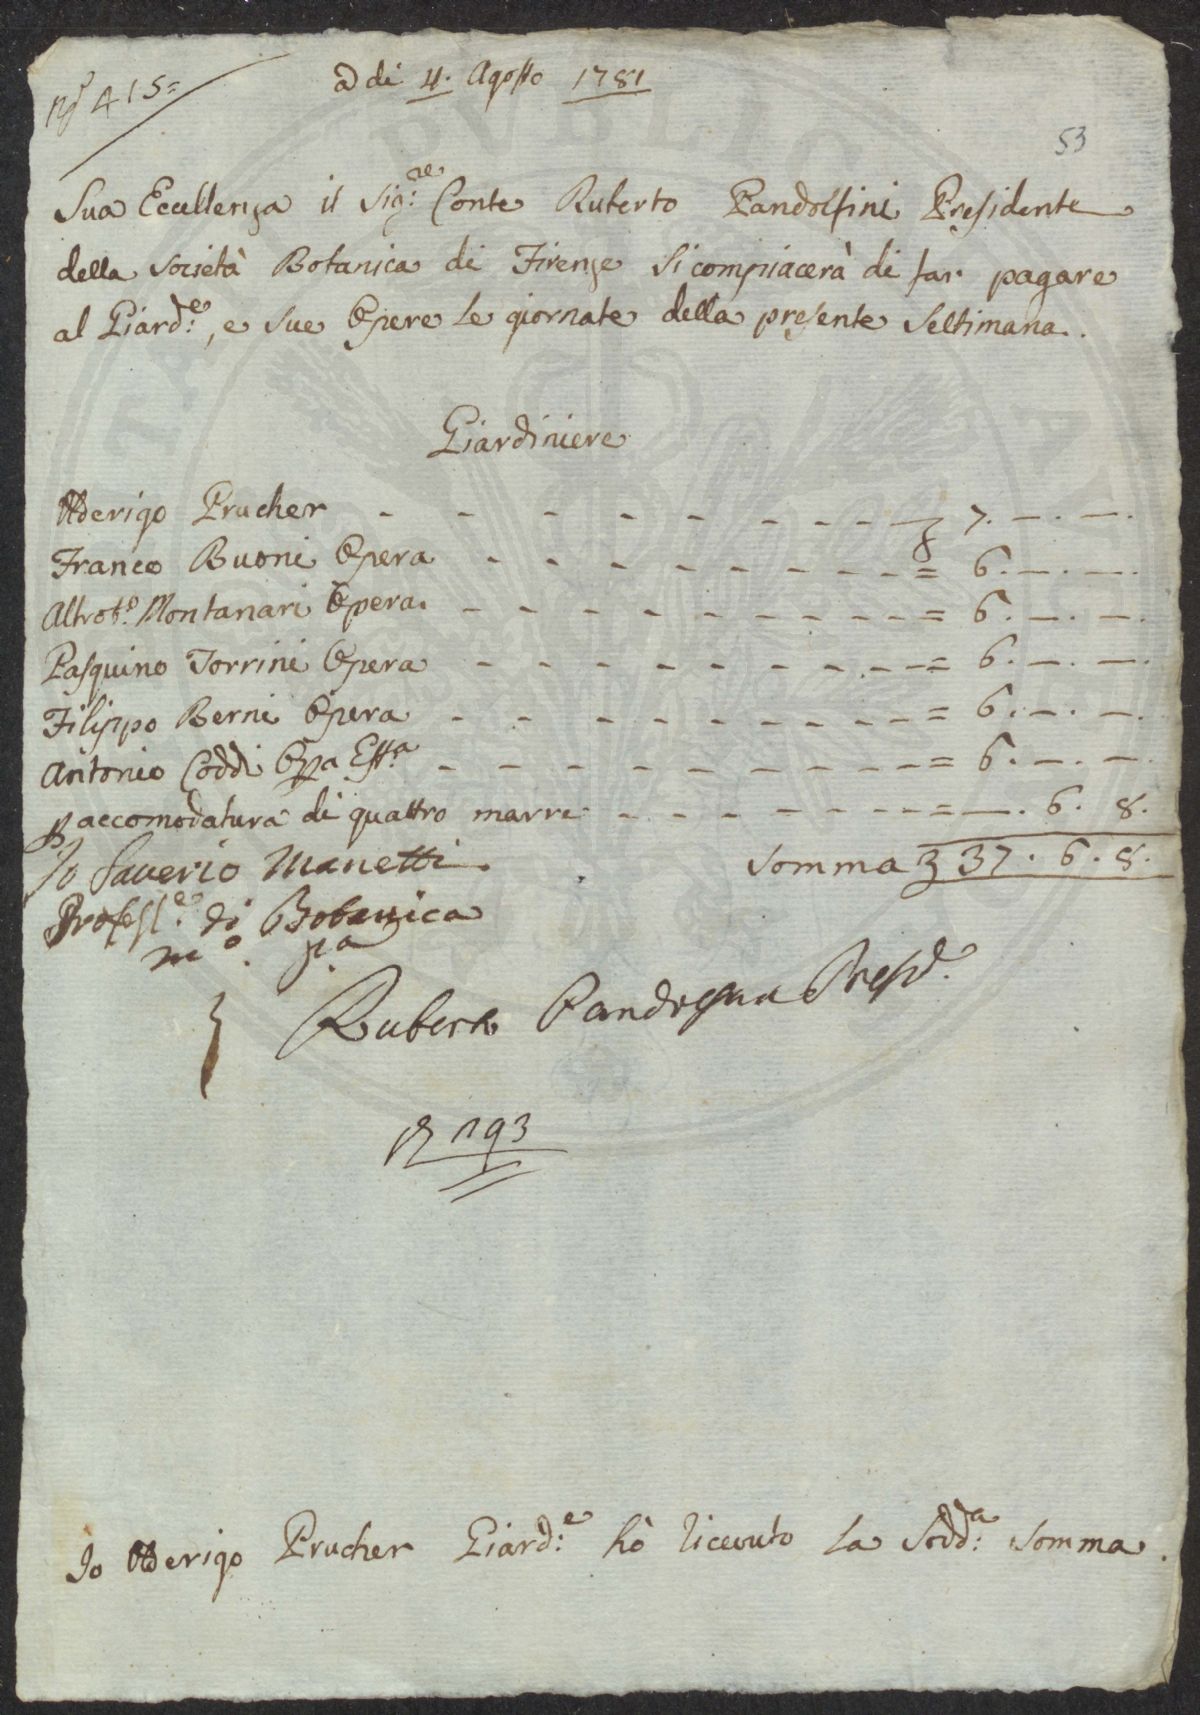 N.º 415=
a di 4. Agosto 1781
53
Sua Eccellenza il Sig:re Conte Ruberto Pandolfini Presidente
della Società Botanica di Firenze si compiacerà di far pagare
al Giard:e, e sue Opere le giornate della presente Settimana.
Giardiniere
Oderigo Prucher - - - - - - - - - £ 7. — . —.
Franco Buoni Opera - - - - - - - - = 6. — . —.
Altrob.o Montanari Opera. - - - - - - - - = 6. — . —.
Pasquino Torrini Opera - - - - - - - - = 6. — . —.
Filippo Berni Opera - - - - - - - - = 6. — . —.
Antonio Coddi Opa Est.a - - - - - - - - = 6. — . —.
P accomodatura di quattro marre - - - - - - - = —. 6. 8.
Io Saverio Manetti Somma £ 37. 6. 8.
Profess.e di Botanica
m.o p.a
Ruberto Pandolfini Presid.
193
Io Oderigo Prucher Giard:e hò ricevuto la Sodd:a Somma.
PVBLIC